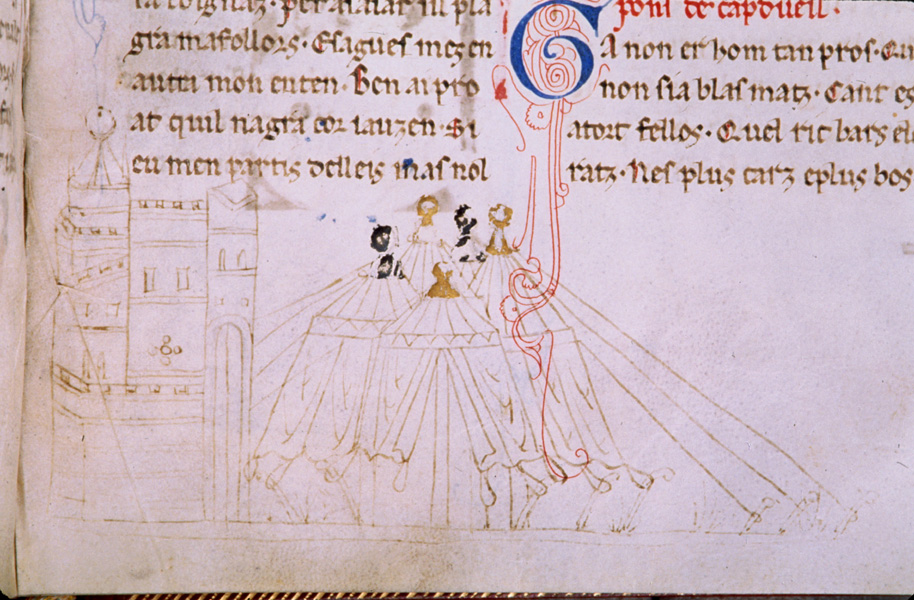 gra mafollors. Esagues mezen
autra mon enten. Ben ai pro
at quil nagra cor iauzen. Si
eu men partis delleis mas nol
Ponz de capdueil.
GA non er hom tan pros. Qu
non sia blasmatz. Cant es
a tort fellos. Quel ric bars el
ratz. Nes plus carz eplus bos